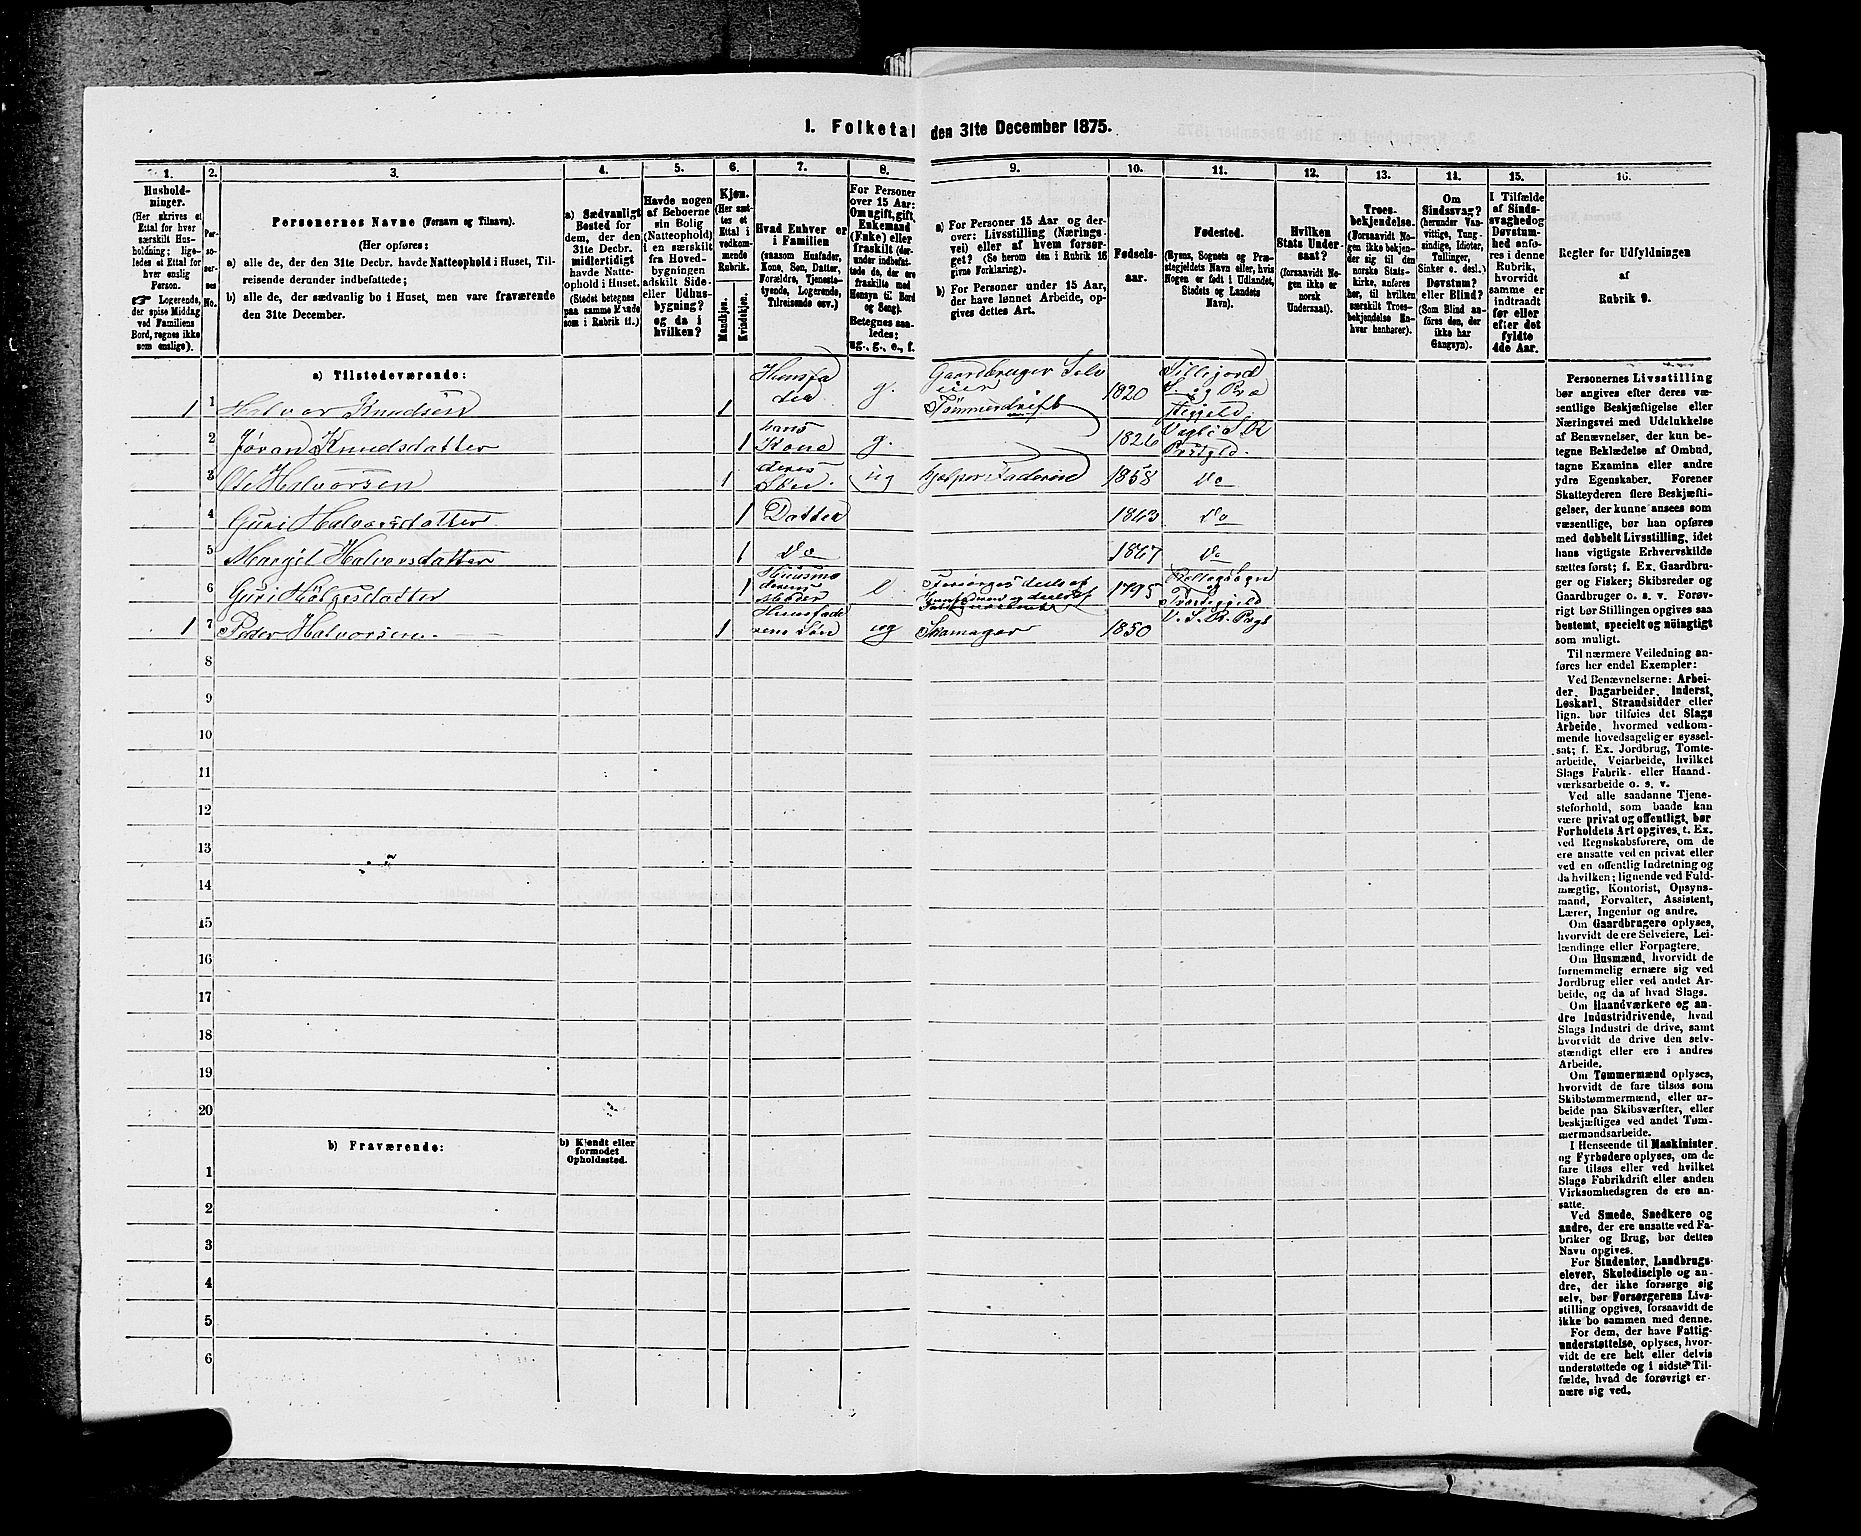 1. Folketal den 31te December 1875.
1.
Hushold-
ninger.
(Her skrives et
Ettal for hver
særskilt Hus-
holdning; lige-
ledes et Ettal for
hver enslig
Person.
☞ Logerende,
der spise Middag
ved Familiens
Bord, regnes ikke
som enslige).
2.
Per-
so-
ner-
nes
No.
3.
Personernes Navne (Fornavn og Tilnavn).
(Her opføres:
a) alle de, der den 31te Decbr. havde Natteophold i Huset, Til-
reisende derunder indbefattede;
b) alle de, der sædvanlig bo i Huset, men vare fraværende
den 31te December.
4.
a) Sædvanligt
Bosted for
dem, der den
31te Decbr.
midlertidigt
havde Natte-
ophold i Huset.
(Stedet betegnes
paa samme Maade
som i Rubrik 11.)
5.
Havde nogen
af Beboerne
sin Bolig
(Natteophold)
i en særskilt
fra Hoved-
bygningen
adskilt Side-
eller Udhus-
bygning?
og da i
hvilken?
6.
Kjøn.
(Her sæt-
tes et
Ettal i
vedkom-
mende
Rubrik.
Mandkjøn.
Kvindekjøn.
7.
Hvad Enhver er
i Familien
(saasom Husfader,
Kone, Søn, Datter,
Forældre, Tjeneste-
tyende, Logerende,
Tilreisende osv.)
8.
For Personer
over 15 Aar:
Om ugift, gift,
Enkemand
(Enke) eller
fraskilt (der-
under indbefat-
tede de, der ere
fraskilte med
Hensyn til Bord
og Seng).
Betegnes saa-
ledes:
ug., g., e., f.
9.
a) For Personer 15 Aar og der-
over: Livsstilling (Nærings-
vei) eller af hvem forsør-
get? (Se herom den i Rubrik 16
givne Forklaring).
b) For Personer under 15 Aar,
der have lønnet Arbeide, op-
gives dettes Art.
10.
Fødsels-
aar.
11.
Fødested.
(Byens, Sognets og Præ-
stegjeldets Navn eller, hvis
Nogen er født i Udlandet,
Stedets og Landets
Navn).
12.
Hvilken
Stats Under-
saat?
(forsaavidt No-
gen ikke er
norsk
Undersaat).
13.
Troes-
bekjendelse.
(Forsaavidt No-
gen ikke bekjen-
der sig til den
norske Stats-
kirke, anføres
her, til hvilken
særskilt Troes-
bekjendelse En-
hver henhører).
14.
Om
Sindssvag?
(herunder Van-
vittige, Tung-
sindige, Idioter,
Tullinger,
Sinker o. desl.)
Døvstum?
eller Blind?
(Som Blind an-
føres den, der
ikke har
Gangsyn).
15.
I Tilfælde
af Sinds-
svaghed og
Døvstum-
hed anfø-
res i denne
Rubrik,
hvorvidt
samme er
indtraadt
før eller
efter det
fyldte
4de Aar.
16.
Regler for Udfyldningen
af
Rubrik 9.
a) Tilstedeværende:
1 1 Halvor Knudsen 1 Husfader g. Gaardbruger Selveier Tømmerdrift 1820
2 Jøran Knudsdatter 1 hans Kone g. 1826
3 Ole Halvorsen 1 deres Søn ug hjelper Faderen 1858 Do
4 Guri Halvorsdatter 1 Datter 1863 Do
5 Margit Halvorsdatter 1 Do 1867 Do
6 Guri Helgesdatter 1 Moder e 1795
1 7 Peder Halvorsen 1 Husfaderens Søn ug Skomager 1850
8
9
10
11
12
13
14
15
16
17
18
19
20
b) Fraværende:
b) Kjendt eller
formodet
Opholdssted.
1
2
3
4
5
6
Personernes Livsstilling
bør angives efter deres væ-
sentlige Beskjæftigelse eller
Næringsvei med Udelukkelse
af Benævnelser, der kun be-
tegne Beklædelse af Ombud,
tagne Examina eller andre
ydre Egenskaber. Forener
Skatteyderen flere Beskjæfti-
gelser, der kunne ansees som
væsentlige, bør han opføres
med dobbelt Livsstilling, idet
hans vigtigste Erhvervskilde
sættes først; f. Ex. Gaardbru-
ger og Fisker; Skibsreder og
Gaardbruger o. s. v. Forøv-
rigt bør Stillingen opgives saa
bestemt, specielt og nøiagtigt
som muligt.
Til nærmere Veiledning an-
føres her endel Exempler:
Ved Benævnelserne: Arbei-
der, Dagarbeider, Inderst,
Løskarl, Strandsidder eller
lign. bør tilføies det Slags
Arbeide, hvormed vedkom-
mende hovedsagelig er syssel-
sat; f. Ex. Jordbrug, Tomte-
arbeide, Veiarbeide, hvilket
Slags Fabrik- eller Haand-
værksarbeide o. s. v.
Ved alle saadanne Tjene-
steforhold, som baade kan
være privat og offentligt, bør
Forholdets Art opgives, t. Ex.
ved Regnskabsførere, om de
ere ansatte ved en privat eller
ved en offentlig Indretning og
da hvilken; lignende ved Fuld-
mægtig, Kontorist, Opsyns-
mand, Forvalter, Assistent,
Lærer, Ingeniør og andre.
Om Gaardbrugere oplyses,
hvorvidt de ere Selveiere, Lei-
lændinge eller Forpagtere.
Om Husmænd, hvorvidt de
fornemmelig ernære sig ved
Jordbrug eller ved andet Ar-
beide, og da af hvad Slags.
Om Haandværkere og an-
dre Industridrivende, hvad
Slags Industri de drive, samt
hvorvidt de drive den selv-
stændigt eller ere i andres
Arbeide.
Om Tømmermænd oplyses,
hvorvidt de fare tilsøs som
Skibstømmermænd, eller ar-
beide paa Skibsværfter, eller
beskjæftiges ved andet Tøm-
mermandsarbeide.
I Henseende til Maskinister
og Fyrbødere oplyses, om de
fare tilsøs eller ved hvilket
Slags Fabrikdrift eller anden
Virksomhedsgren de ere an-
satte.
Ved Smede, Snedkere og
andre, der ere ansatte ved Fa-
briker og Brug, bør dettes
Navn opgives.
For Studenter, Landbrugs-
elever, Skoledisciple og an-
dre, der ikke forsørge sig
selv, bør Forsørgerens Livs-
stilling opgives, forsaavidt de
ikke bo sammen med denne.
For dem, der have Fattig-
understøttelse, oplyses, hvor-
vidt de ere helt eller delvis
understøttede og i sidste Til-
fælde, hvad de forøvrigt er-
nære sig ved.